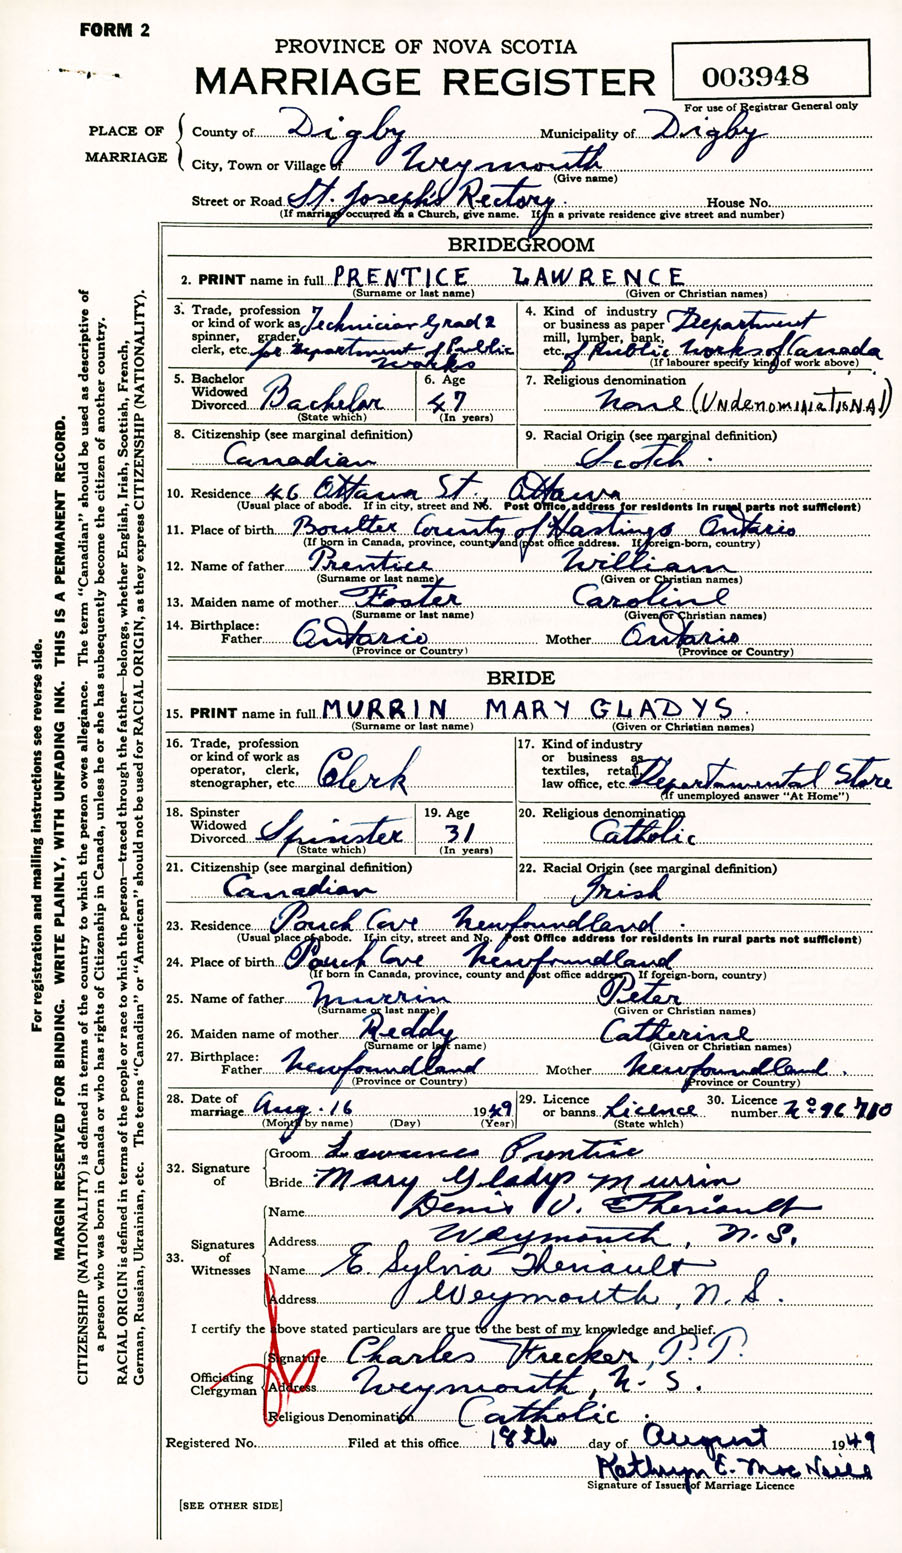 FORM 2
PROVINCE OF NOVA SCOTIA
MARRIAGE REGISTER
003948
For use of Registrar General only
PLACE OF MARRIAGE
County of Digby Municipality of Digby
City, Town or Village of Weymouth
(Give name)
Street or Road St. Joseph's Rectory. House No.
(If marriage occurred in a Church, give name. If in a private residence give street and number)
BRIDEGROOM
2. PRINT name in full PRENTICE LAWRENCE
(Surname or last name) (Given or Christian names)
3. Trade, profession or kind of work as spinner, grader, clerk, etc. Technician Grad 2 for Department of Public Works
4. Kind of industry or business as paper mill, lumber, bank, etc. Department of Public Works of Canada
(If labourer specify kind of work above)
5. Bachelor Widowed Divorced Bachelor
(State which)
6. Age 47
(In years)
7. Religious denomination
None (UNdenominatioNAl)
8. Citizenship (see marginal definition)
Canadian
9. Racial Origin (see marginal definition)
Scotch.
10. Residence 46 Ottawa St., Ottawa
(Usual place of abode. If in city, street and No. Post Office address for residents in rural parts not sufficient)
11. Place of birth Boulter County of Hastings Ontario
(If born in Canada, province, county and post office address. If foreign-born, country)
12. Name of father Prentice William
(Surname or last name) (Given or Christian names)
13. Maiden name of mother Foster Caroline
(Surname or last name) (Given or Christian names)
14. Birthplace:
Father Ontario Mother Ontario
(Province or Country) (Province or Country)
BRIDE
15. PRINT name in full MURRIN MARY GLADYS.
(Surname or last name) (Given or Christian names)
16. Trade, profession or kind of work as operator, clerk, stenographer, etc. Clerk
17. Kind of industry or business as textiles, retail, law office, etc. Departamental Store
(If unemployed answer "At Home")
18. Spinster Widowed Divorced Spinster
(State which)
19. Age 31
(In years)
20. Religious denomination
Catholic
21. Citizenship (see marginal definition)
Canadian
22. Racial Origin (see marginal definition)
Irish
23. Residence Pouch Cove Newfoundland.
(Usual place of abode. If in city, street and No. Post Office address for residents in rural parts not sufficient)
24. Place of birth Pouch Cove Newfoundland
(If born in Canada, province, county and post office address. If foreign-born, country)
25. Name of father Murrin Peter
(Surname or last name) (Given or Christian names)
26. Maiden name of mother Reddy Catherine
(Surname or last name) (Given or Christian names)
27. Birthplace:
Father Newfoundland Mother Newfoundland.
(Province or Country) (Province or Country)
28. Date of marriage Aug. 16 1949
(Month by name) (Day) (Year)
29. Licence or banns Licence
(State which)
30. Licence number No 96710
32. Signature of
Groom Lawrence Prentice
Bride Mary Gladys Murrin
33. Signatures of Witnesses
Name Denis V. Theriault
Address Weymouth, N.S.
Name E. Sylvia Theriault
Address Weymouth, N.S.
I certify the above stated particulars are true to the best of my knowledge and belief.
Officiating Clergyman
Signature Charles Frecker, P.P.
Address Weymouth, N.S.
Religious Denomination Catholic.
Registered No. Filed at this office 18th day of August 1949
Kathryn E. MacNeill
Signature of Issuer of Marriage Licence
[SEE OTHER SIDE]
For registration and mailing instructions see reverse side.
MARGIN RESERVED FOR BINDING. WRITE PLAINLY, WITH UNFADING INK. THIS IS A PERMANENT RECORD.
CITIZENSHIP (NATIONALITY) is defined in terms of the country to which the person owes allegiance. The term "Canadian" should be used as descriptive of
a person who was born in Canada or who has rights of Citizenship in Canada, unless he or she has subsequently become the citizen of another country.
RACIAL ORIGIN is defined in terms of the people or race to which the person—traced through the father—belongs, whether English, Irish, Scottish, French,
German, Russian, Ukrainian, etc. The terms "Canadian" or "American" should not be used for RACIAL ORIGIN, as they express CITIZENSHIP (NATIONALITY).